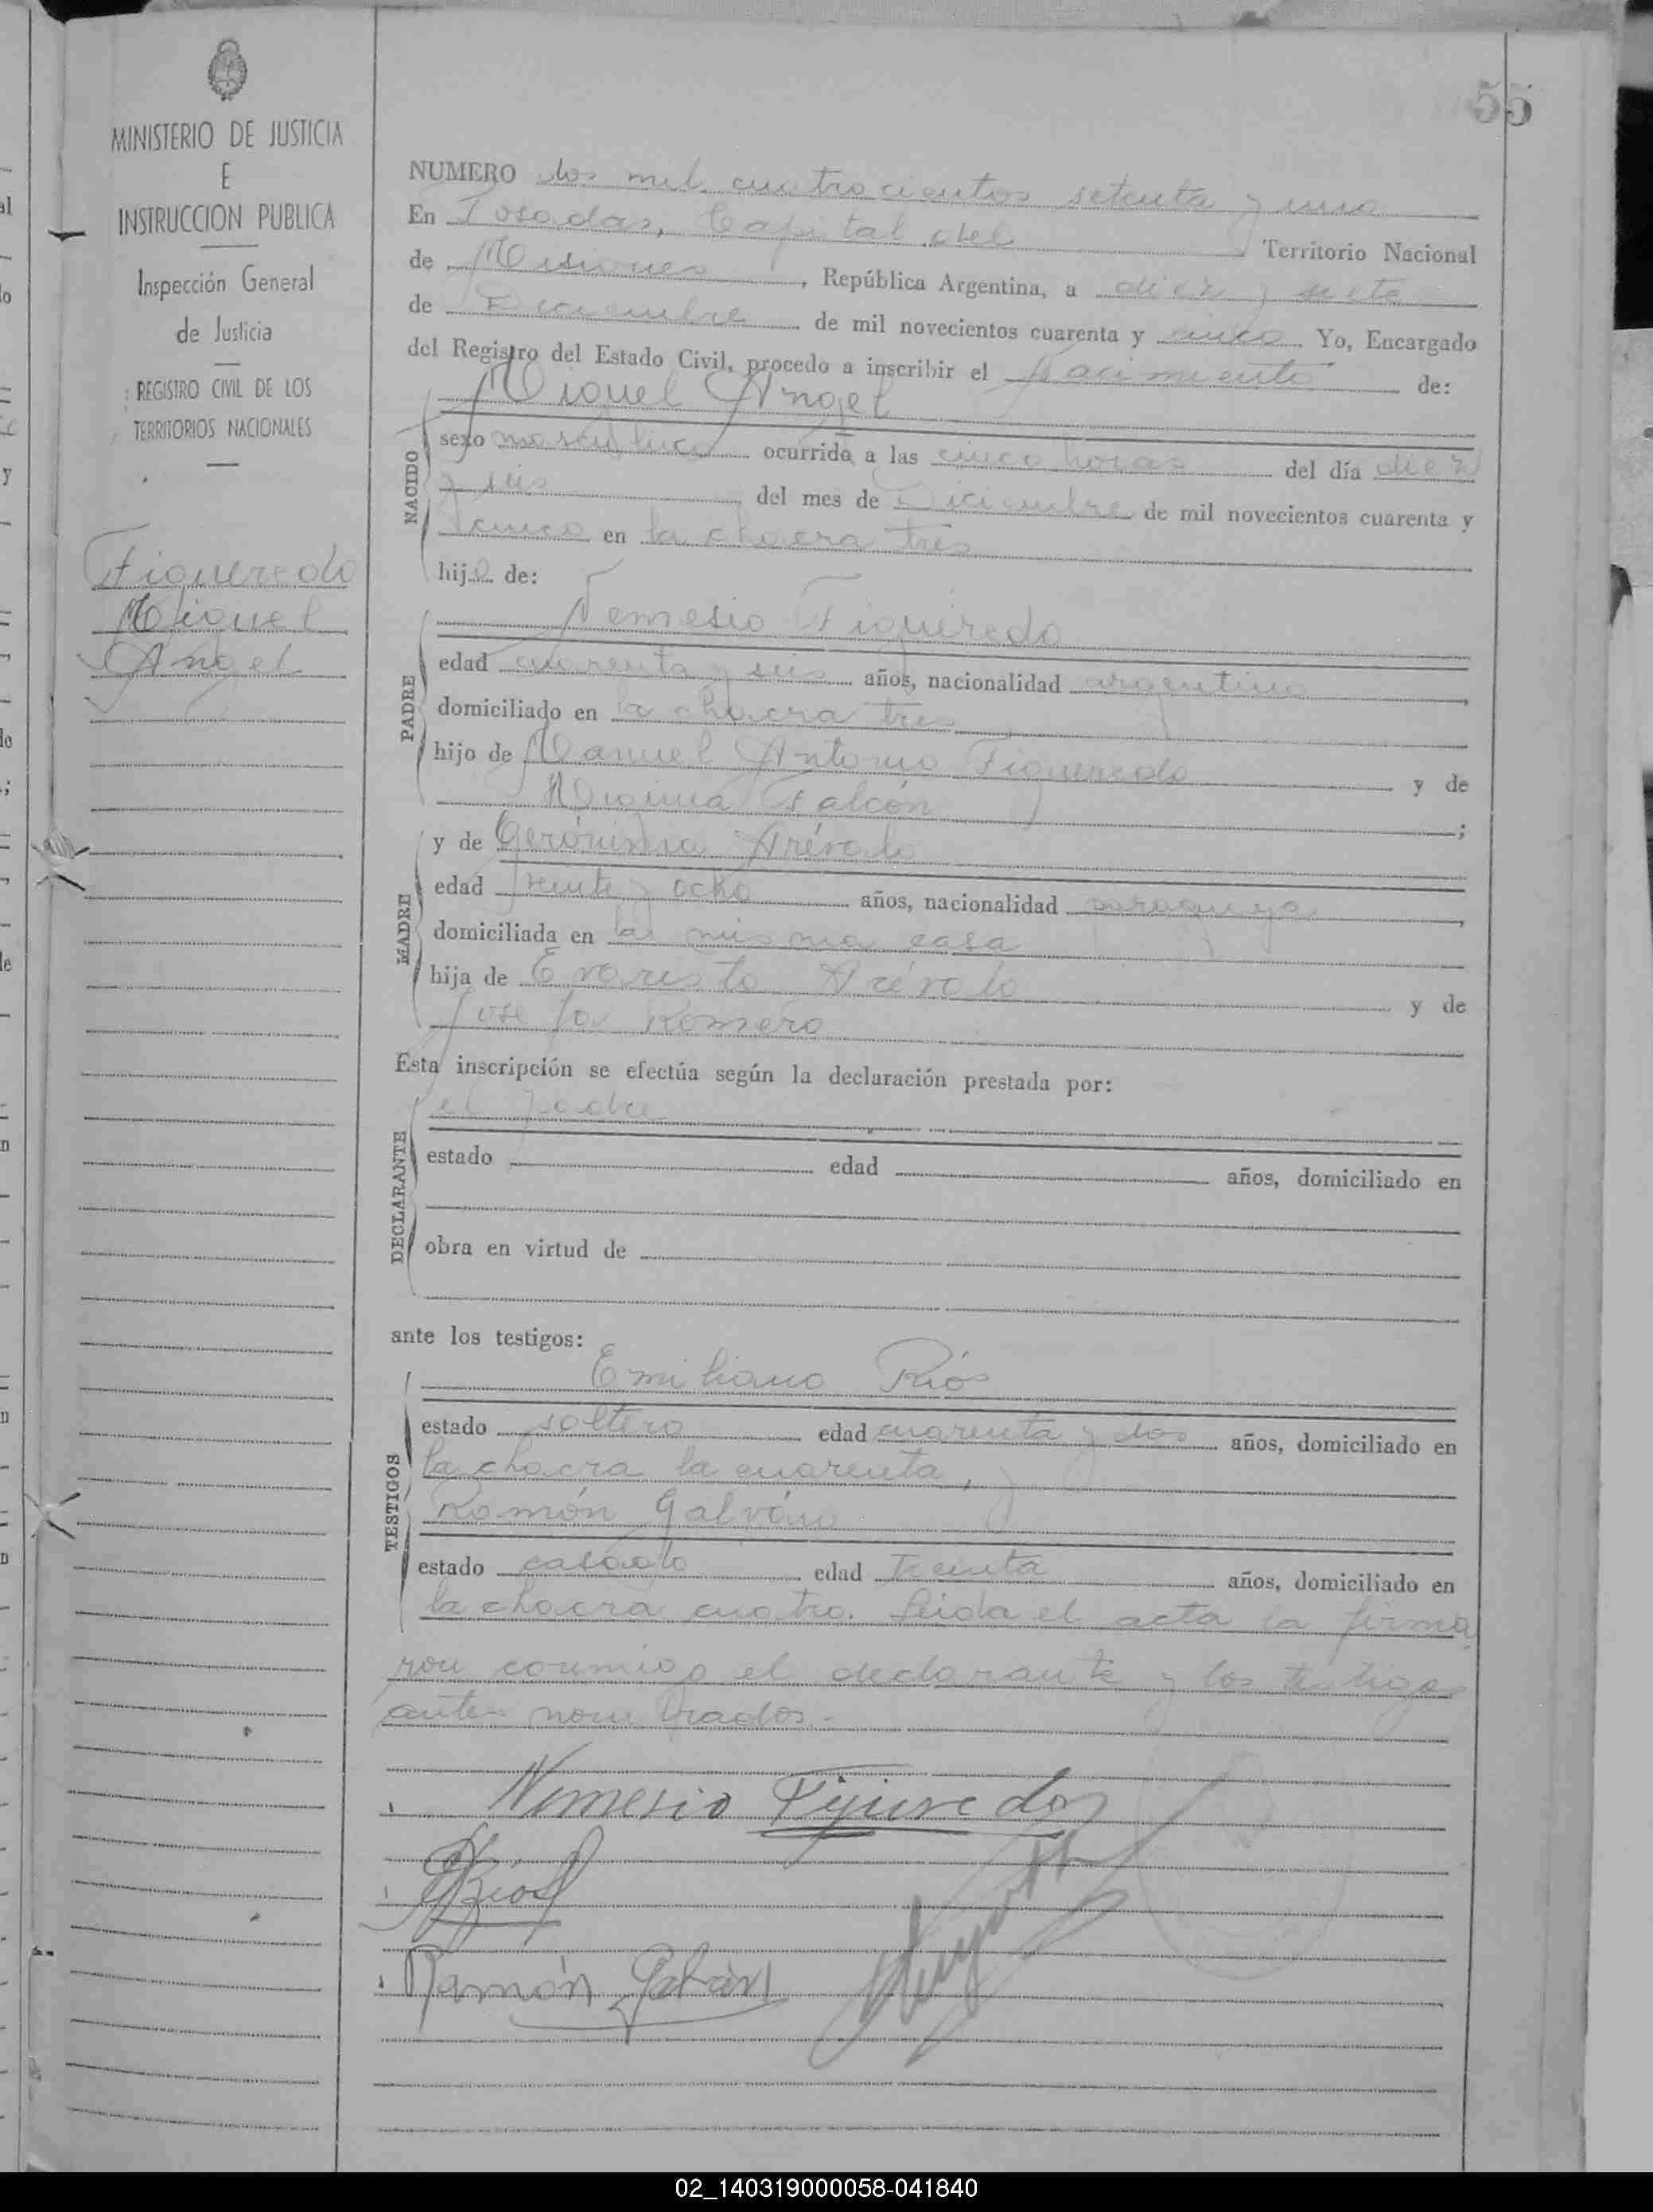 55
MINISTERIO DE JUSTICIA
E
INSTRUCCION PUBLICA
Inspección General
de Justicia
REGISTRO CIVIL DE LOS
TERRITORIOS NACIONALES
Figueredo
Miguel
Angel
NUMERO dos mil cuatrocientos setenta y uno
En Posadas, Capital del Territorio Nacional
de Misiones, República Argentina, a diez y siete
de Diciembre de mil novecientos cuarenta y cinco. Yo, Encargado
del Registro del Estado Civil, procedo a inscribir el Nacimiento de:
Miguel Angel
NACIDO
sexo masculino ocurrido a las cinco horas del día diez
y seis del mes de Diciembre de mil novecientos cuarenta y
cinco en la chacra tres
hijo de:
Nemesio Figueredo
PADRE
edad cuarenta y seis años, nacionalidad argentino
domiciliado en la chacra tres
hijo de Manuel Antonio Figueredo y de
Higinia Falcón;
MADRE
y de Gerónima Arévalo
edad treinta y ocho años, nacionalidad paraguaya,
domiciliada en la misma casa
hija de Evaristo Arévalo y de
Josefa Romero
Esta inscripción se efectúa según la declaración prestada por:
el padre
DECLARANTE
estado edad años, domiciliado en
obra en virtud de
ante los testigos:
Emiliano Ríos
TESTIGOS
estado soltero edad cuarenta y dos años, domiciliado en
la chacra la cuarenta, y
Ramón Galván
estado casado edad treinta años, domiciliado en
la chacra cuatro. Leida el acta la firma
ron conmigo el declarante y los testigos
antes nombrados.-
Nemesio Figueredo
Ríos
Ramón Galván
02_140319000058-041840